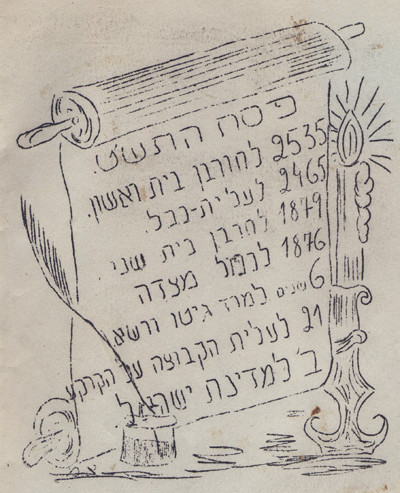 פסח התש"ט.
2535 לחורבן בית ראשון.
2465 לעלית-בבל.
1879 לחרבן בית שני.
1876 לנפול מצדה
6 שנים למרד גיטו ורשא.
21 לעלית הקבוצה על הקרקע
ב' למדינת ישראל